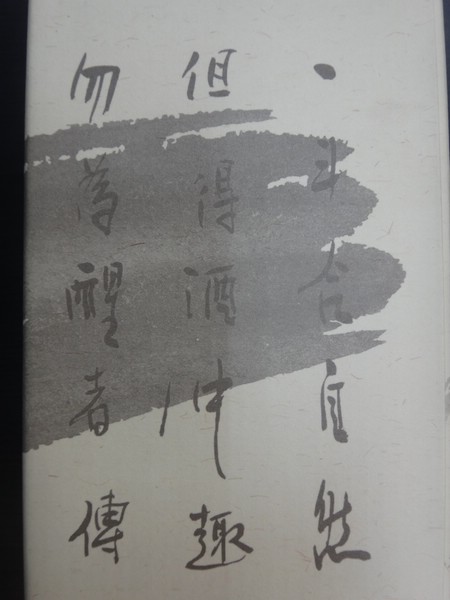 一斗合自然
但得酒仲趣
勿為醒者傳